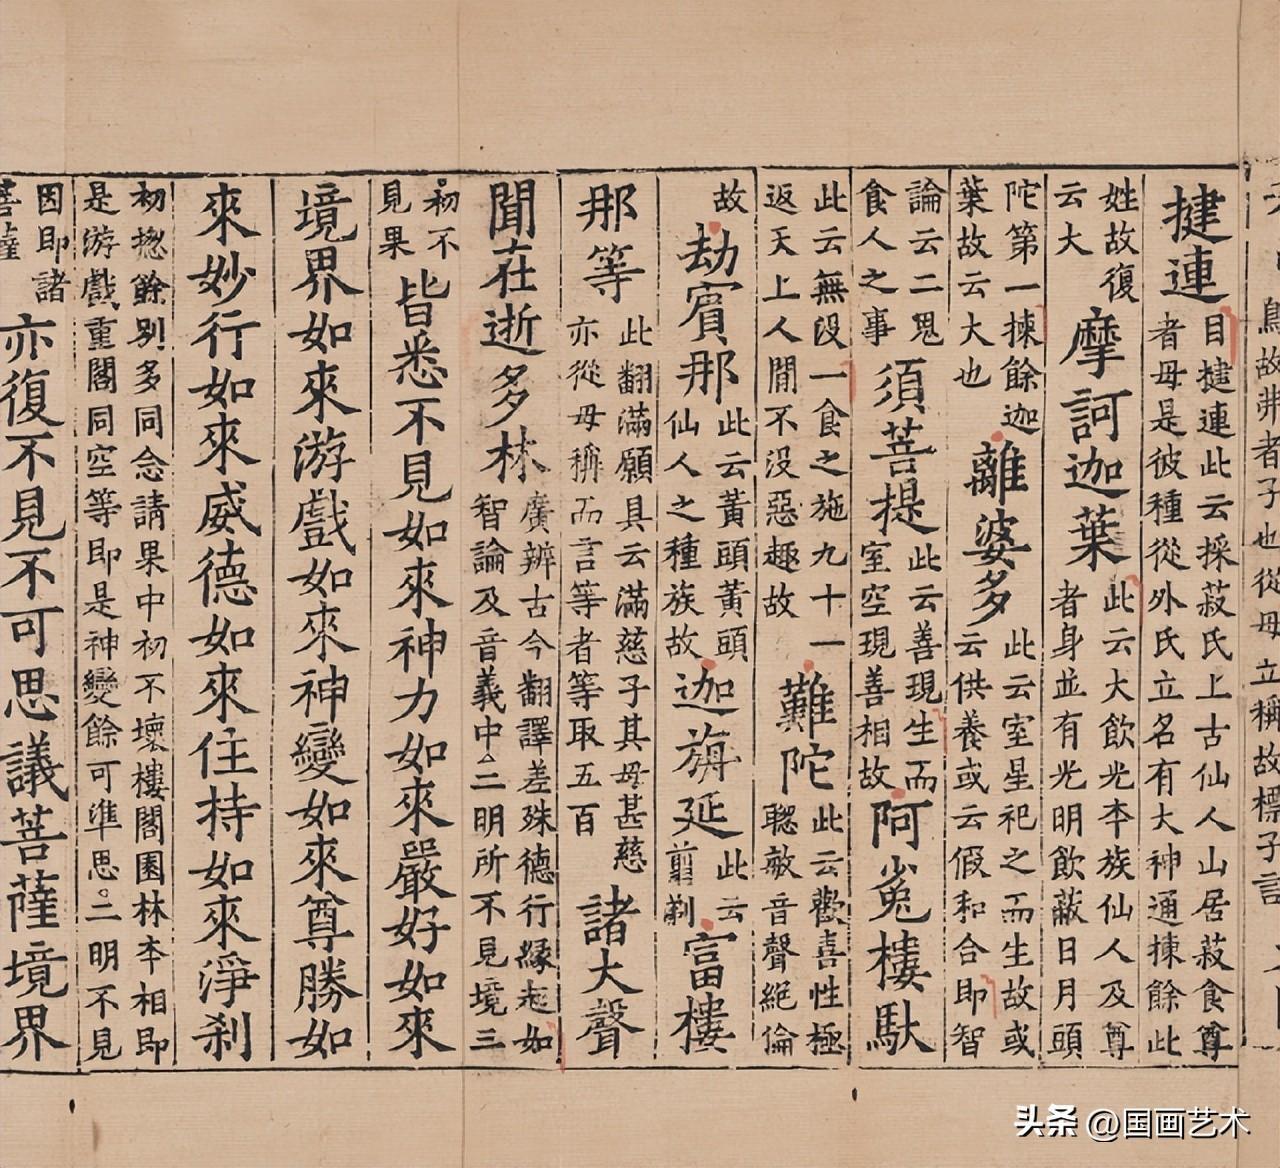 鳥故弗者子也從母立稱故標子言
揵連
目揵連此云採菽氏上古仙人山居菽食尊
者母是彼種從外氏立名有大神通揀餘此
姓故復
云大
摩訶迦葉
此云大飲光夲族仙人及尊
者身並有光明飲蔽日月頭
陀第一揀餘迦
葉故云大也
離婆多
此云室星祀之而生故或
云供養或云假和合即智
論云二鬼
食人之事
須菩提
此云善現生而
室空現善相故
阿㝹樓馱
此云無没一食之施九十一
返天上人間不没惡趣故
難陀
此云歡喜性極
聦敏音聲絕倫
故
劫賓那
此云黃頭黃頭
仙人之種族故
迦旃延
此云
剪剃
富樓
那等
此翻滿願具云滿慈子其母甚慈
亦從母稱而言等者等取五百
諸大聲
聞在逝多林
廣辨古今翻譯差殊德行緣起如
智論及音義中。二明所不見境三
初不
見果
皆悉不見如來神力如來嚴好如來
境界如來游戲如來神變如來尊勝如
來妙行如來威德如來住持如來淨刹
初揔餘别多同念請果中初不壞樓閣園林夲相即
是游戲重閣同空等即是神變餘可準思。二明不見
因即諸
菩薩
亦復不見不可思議菩薩境界
头条 @国画艺术